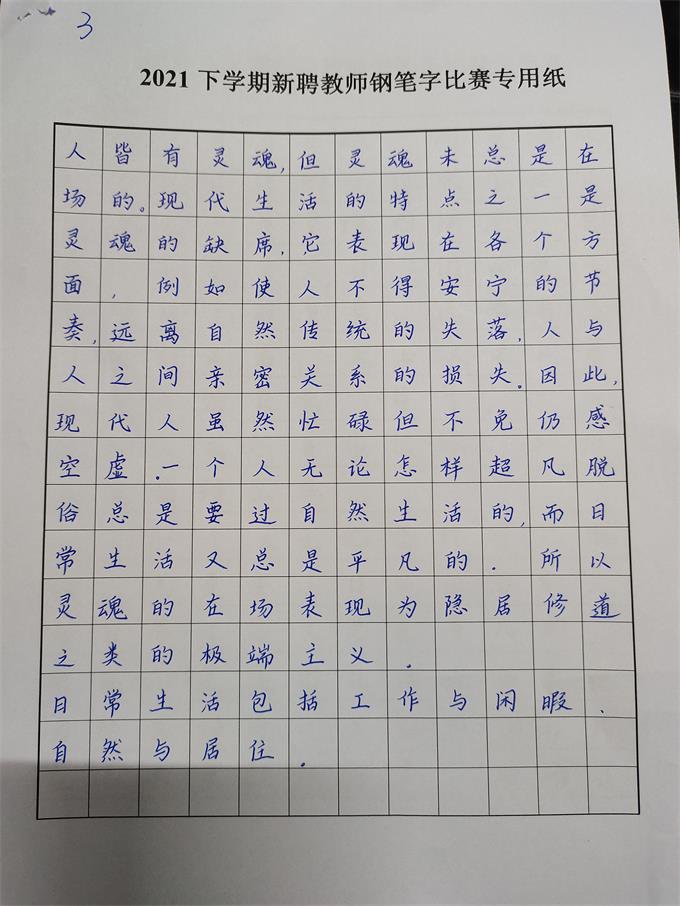 3
2021 下学期新聘教师钢笔字比赛专用纸
人皆有灵魂,但灵魂未总是在
场的。现代生活的特点之一是
灵魂的缺席,它表现在各个方
面,例如使人不得安宁的节
奏,远离自然传统的失落,人与
人之间亲密关系的损失。因此,
现代人虽然忙碌但不免仍感
空虚.一个人无论怎样超凡脱
俗总是要过自然生活的,而日
常生活又总是平凡的.所以
灵魂的在场表现为隐居修道
之类的极端主义.
日常生活包括工作与闲暇、
自然与居住.